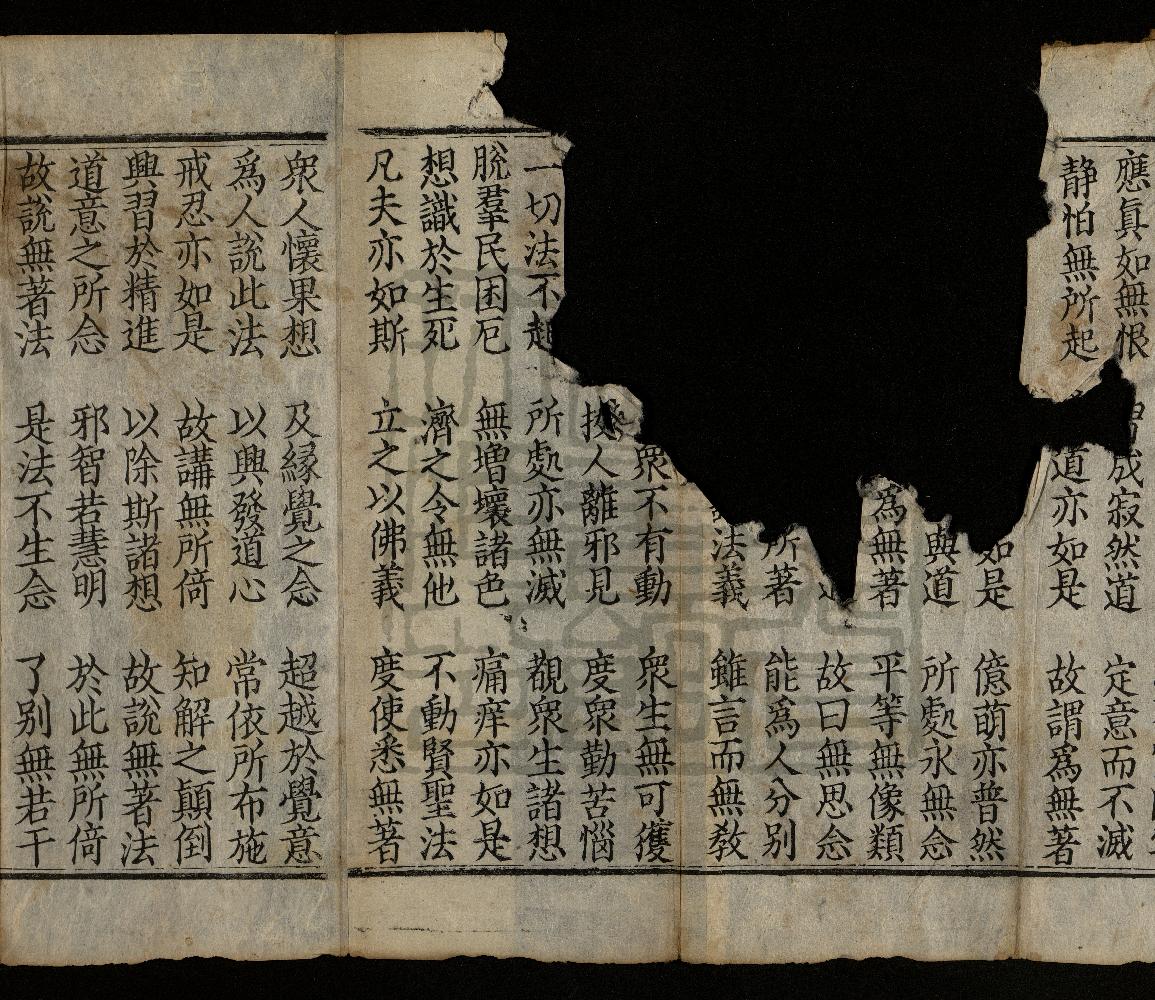 應眞如無恨 成寂然道 定意而不滅
静怕無所起 道亦如是 故謂爲無著
如是 億萌亦普然
興道 所處永無念
爲無著 平等無像類
故曰無思念
所著 能爲人分別
法義 雖言而無教
衆不有動 衆生無可獲
人離邪見 度衆勤苦惱
一切法不起 所處亦無滅 觀衆生諸想
脫羣民困厄 無增壞諸色 痛痒亦如是
想識於生死 濟之令無他 不動賢聖法
凡夫亦如斯 立之以佛義 度使悉無著
衆人懷果想 及緣覺之念 超越於覺意
爲人說此法 以興發道心 常依所布施
戒忍亦如是 故講無所倚 知解之顛倒
興習於精進 以除斯諸想 故說無著法
道意之所念 邪智若慧明 於此無所倚
故說無著法 是法不生念 了别無若干